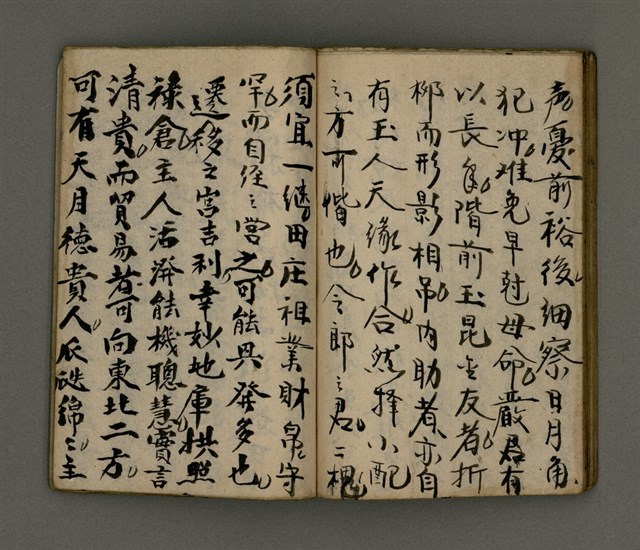 憂前裕後細察日月角
犯冲难免早尅母命嚴君有
以長年階前玉昆金友者折
柳而形影相吊内助者亦自
有玉人天緣作合然擇小配
之方可偕也令郎之君二槐
須宜一継田庄祖業財帛守
罕而自經之営之可能興發多也
遷移之宮吉利幸妙地庫拱照
祿倉主人活潑能機聰慧實言
清貴而貿易者可向東北二方
可有天月德貴人瓜瓞綿之主